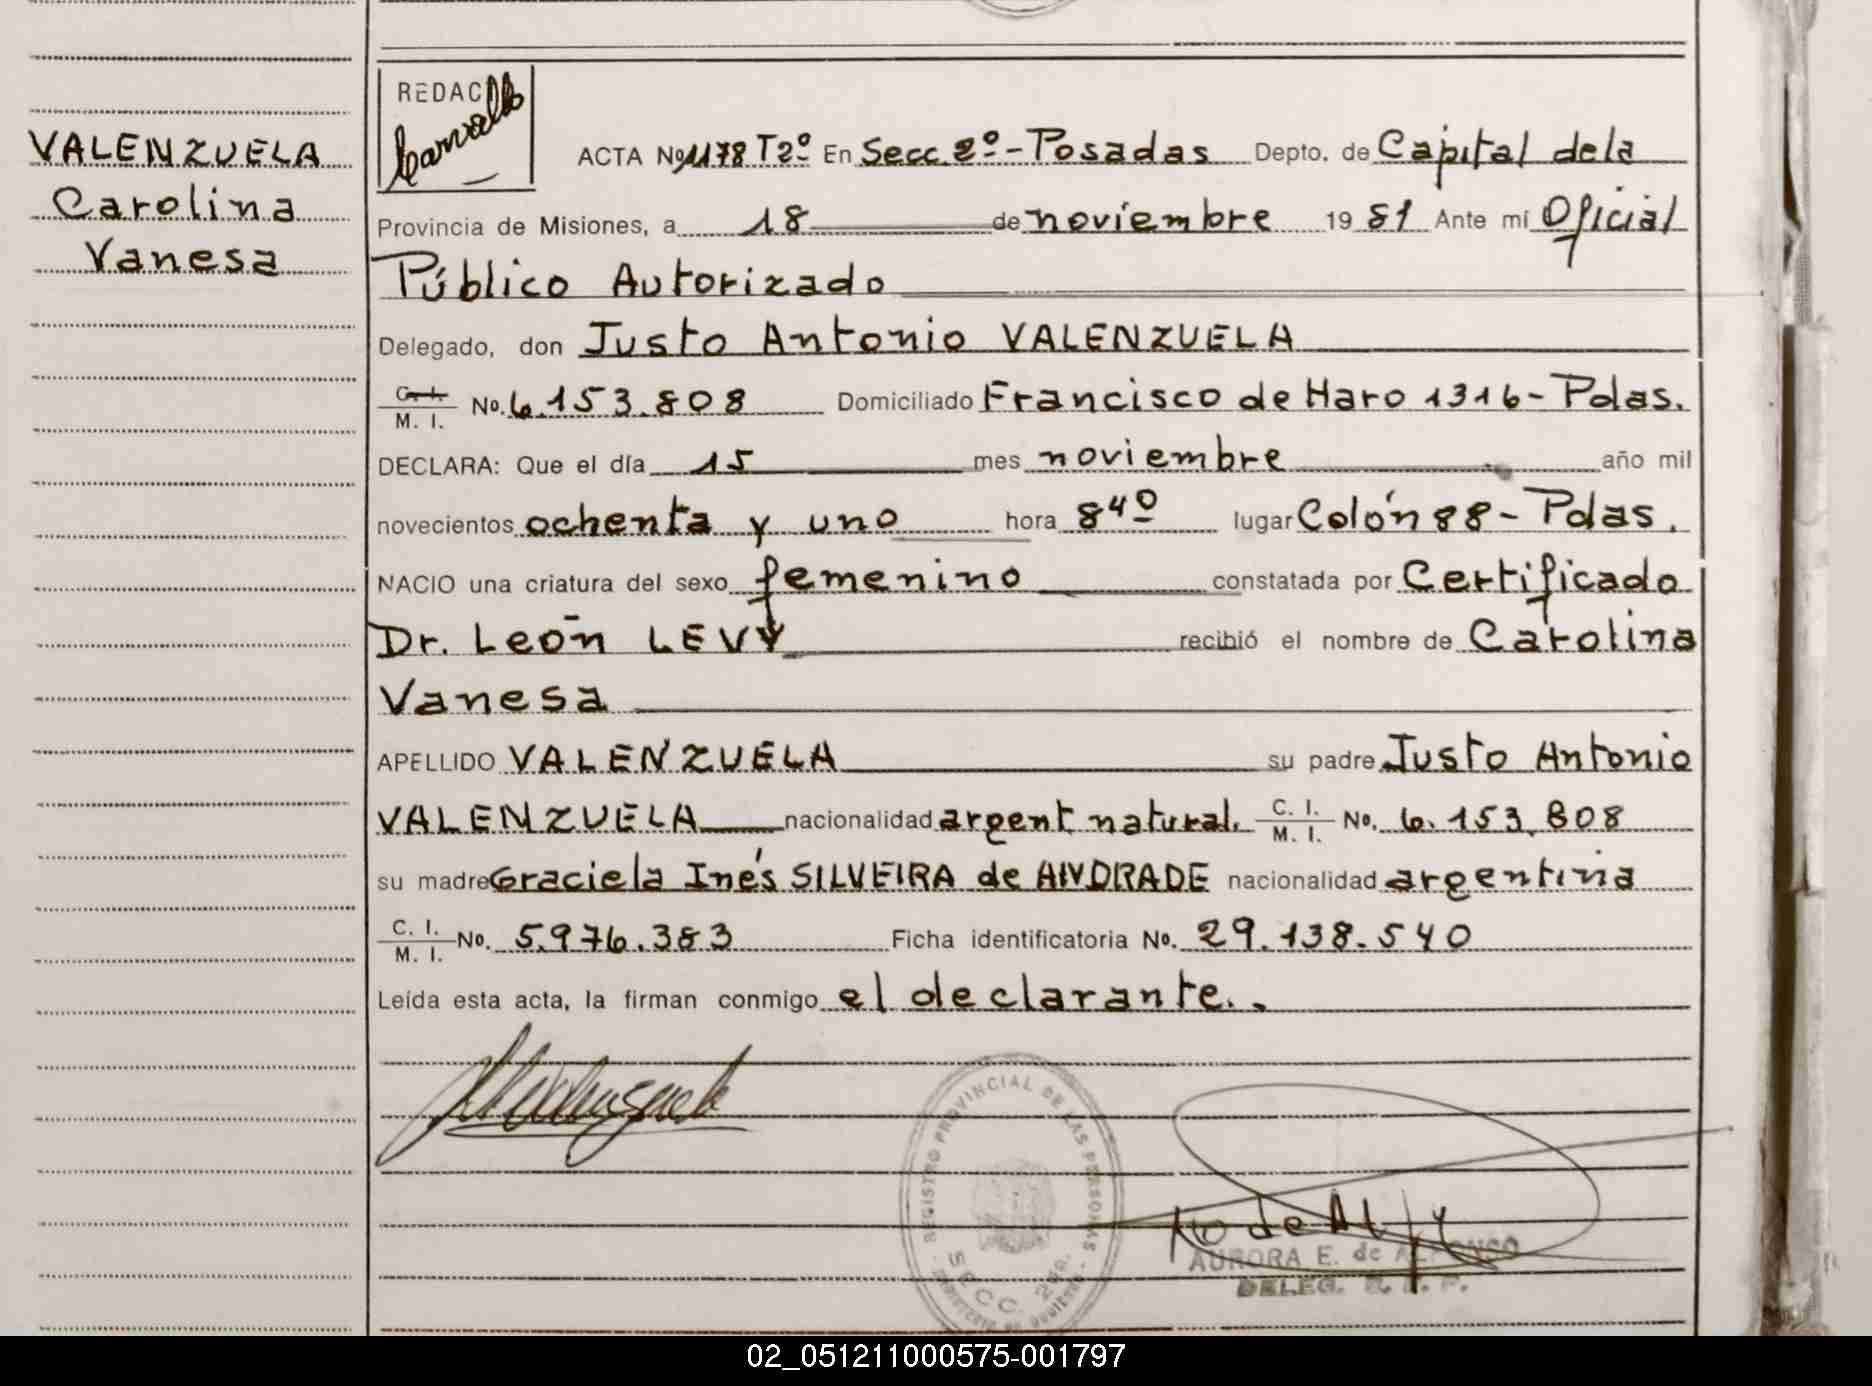 VALENZUELA
Carolina
Vanesa
REDAC
Carvallo
ACTA Nº 1178 Tº2 En Secc 2º - Posadas Depto. de Capital de la
Provincia de Misiones, a 18 de noviembre 1981 Ante mí Oficial
Público Autorizado
Delegado, don Justo Antonio VALENZUELA
C. I.
M. I. No. 6.153.808 Domiciliado Francisco de Haro 1316 - Pdas.
DECLARA: Que el día 15 mes noviembre año mil
novecientos ochenta y uno hora 8 40 lugar Colón 88 - Pdas.
NACIO una criatura del sexo femenino constatada por Certificado
Dr. León LEVY recibió el nombre de Carolina
Vanesa
APELLIDO VALENZUELA su padre Justo Antonio
VALENZUELA nacionalidad argent natural. C. I. M. I. No. 6.153.808
su madre Graciela Inés SILVEIRA de ANDRADE nacionalidad argentina
C. I. M. I. No. 5.976.383 Ficha identificatoria No. 29.138.540
Leída esta acta, la firman conmigo el declarante..
REGISTRO PROVINCIAL DE LAS PERSONAS
SECC. 2da.
AURORA E. de ALFONSO
DELEG. R. P. P.
02_051211000575-001797